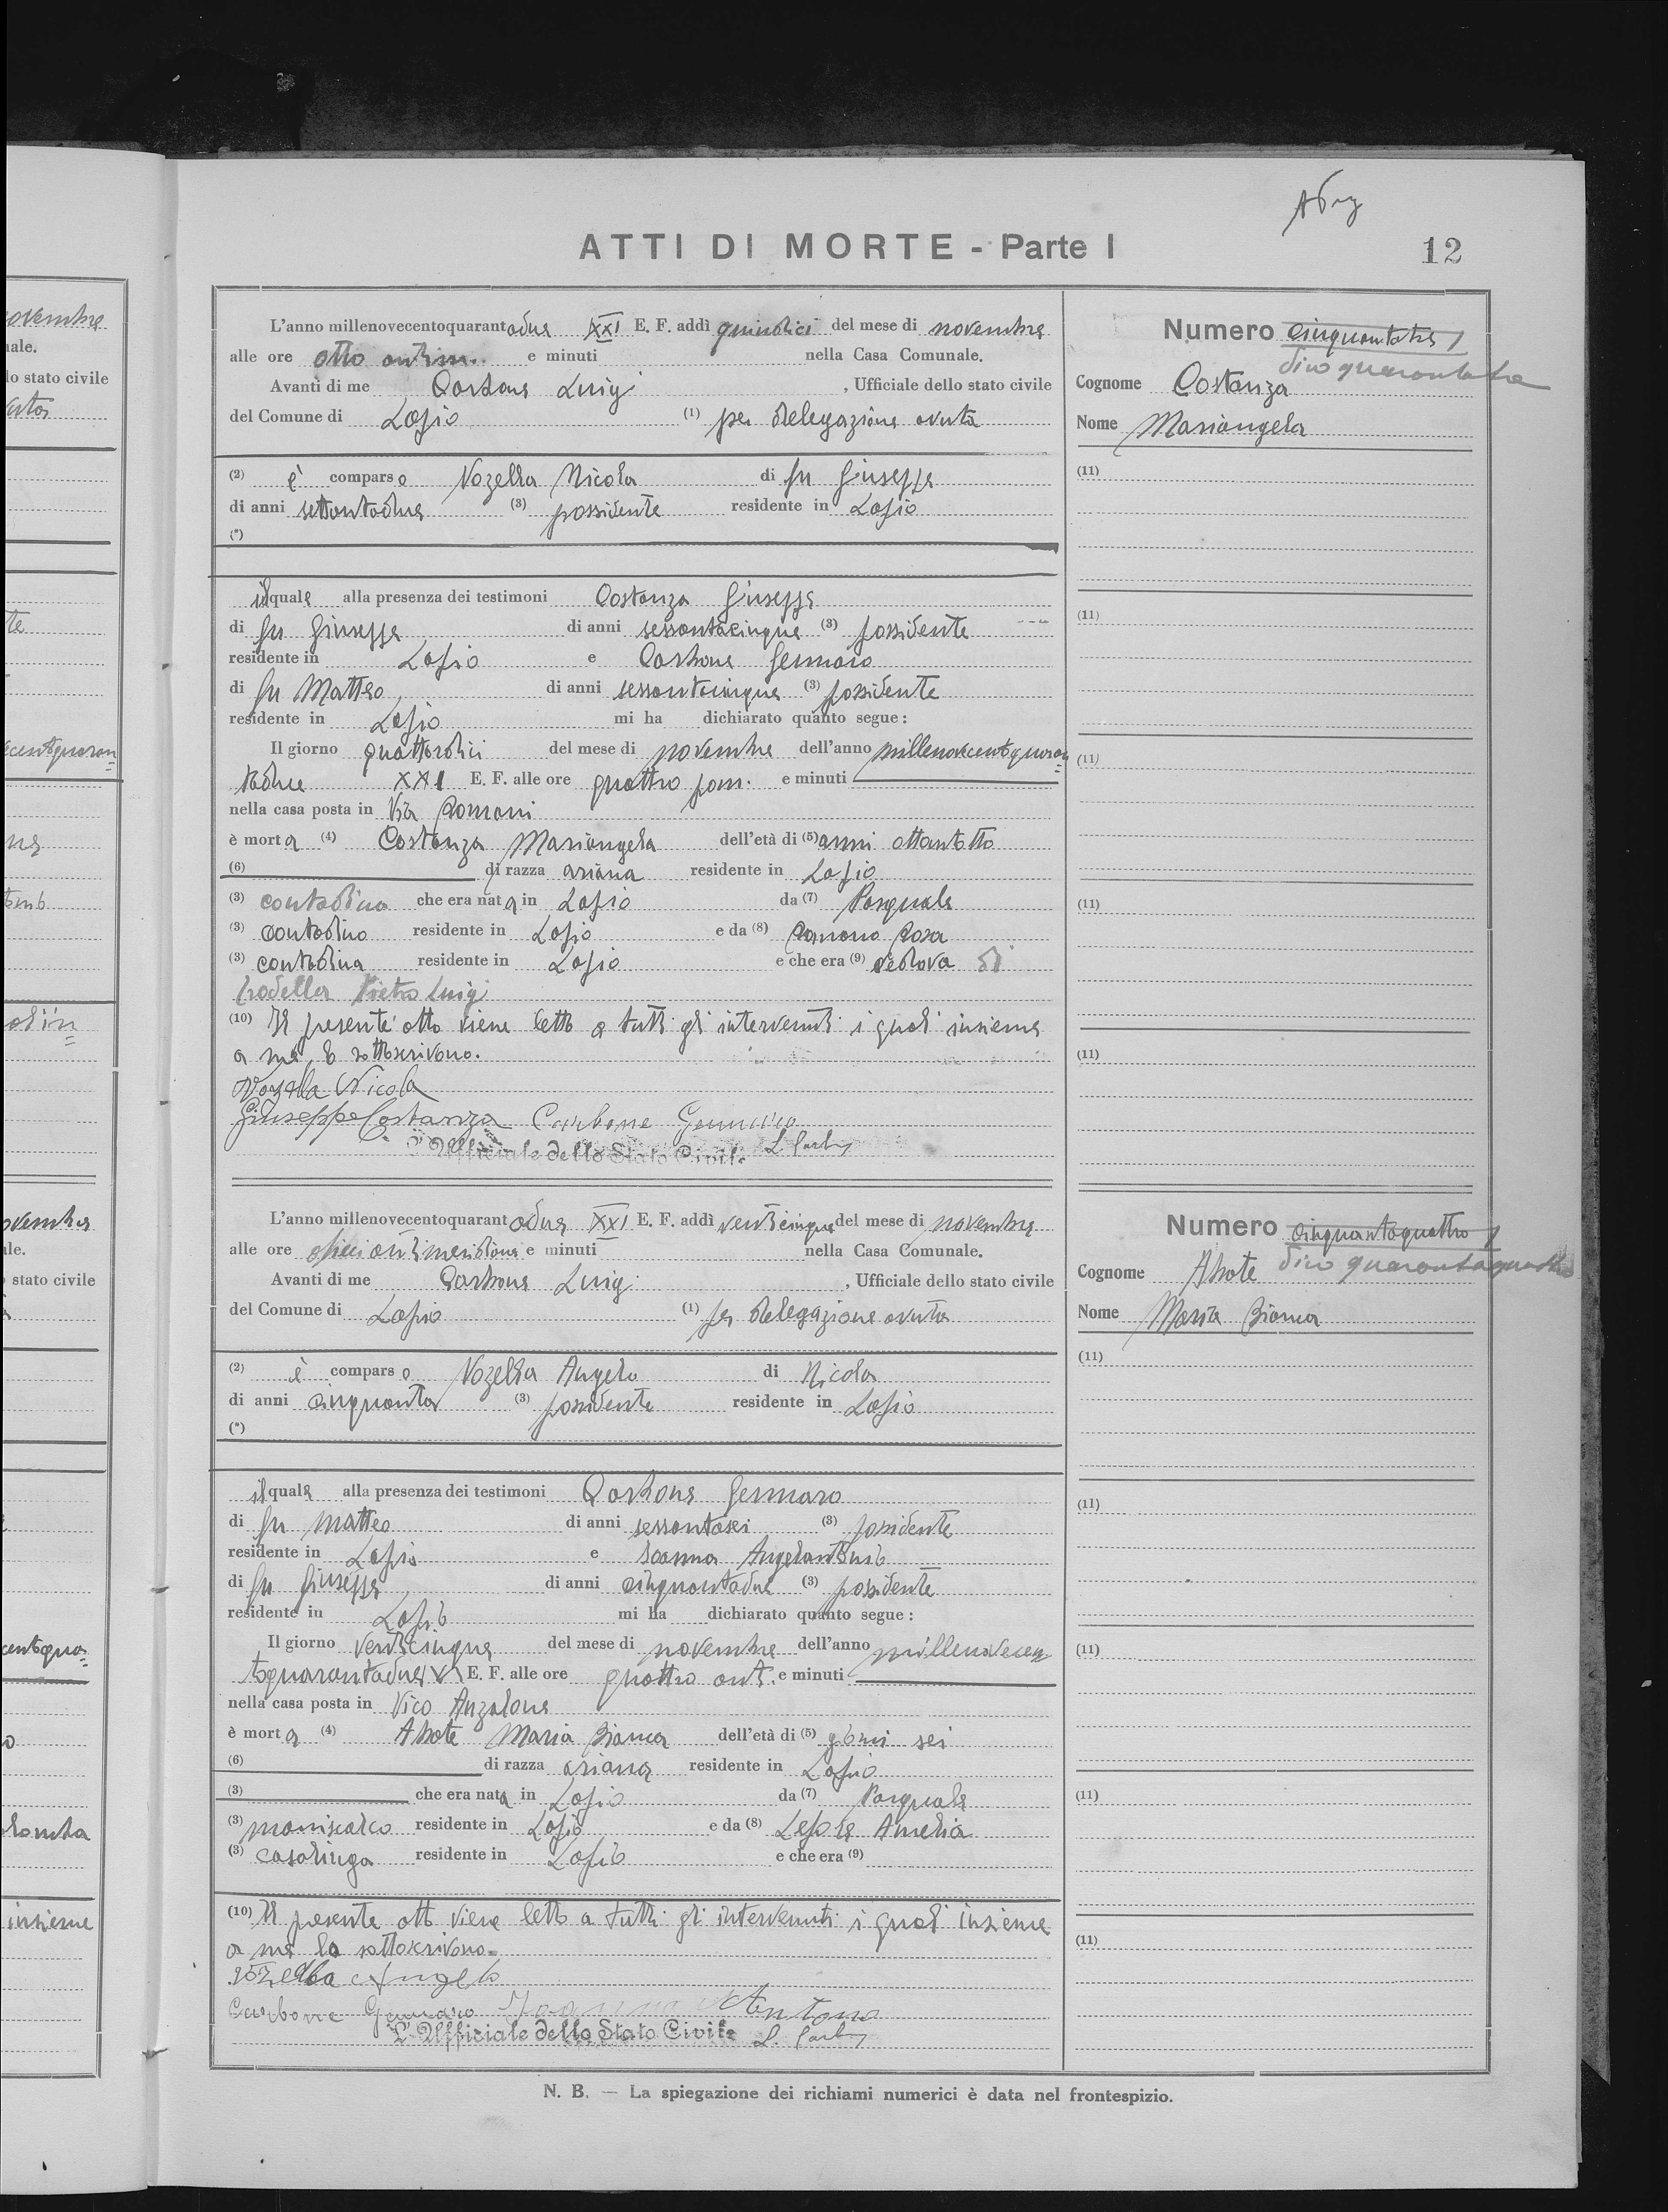 ATTI DI MORTE - Parte I
12
L'anno millenovecentoquarantadue XXI E. F. addì quindici del mese di novembre
alle ore otto antim. e minuti nella Casa Comunale.
Avanti di me Carbone Luigi, Ufficiale dello stato civile
del Comune di Lapio (1) per delegazione avuta
(2) è comparso Vozella Nicola di fu Giuseppe
di anni settantadue (3) possidente residente in Lapio
(*)
il quale alla presenza dei testimoni Costanza Giuseppe
di fu Giuseppe di anni sessantacinque (3) possidente
residente in Lapio e Carbone Gennaro
di fu Matteo, di anni sessantacinque (3) possidente
residente in Lapio mi ha dichiarato quanto segue:
Il giorno quattordici del mese di novembre dell'anno millenovecentoquaran
tadue XXI E. F. alle ore quattro pom. e minuti
nella casa posta in Via Romani
è morta (4) Costanza Mariangela dell'età di (5) anni ottantotto
(6) di razza ariana residente in Lapio
(3) contadina che era nata in Lapio da (7) Pasquale
(3) contadino residente in Lapio e da (8) Romano Rosa
(3) contadina residente in Lapio e che era (9) vedova di
Pietro Luigi
(10) Il presente atto viene letto a tutti gli intervenuti i quali insieme
a me, lo sottoscrivono.
Vozella Nicola
Giuseppe Costanza Carbone Gennaro
L'Ufficiale dello Stato Civile L. Carbone
Numero cinquantatre
dico quarantatre
Cognome Costanza
Nome Mariangela
(11)
(11)
(11)
(11)
(11)
L'anno millenovecentoquarantadue XXI E. F. addì venticinque del mese di novembre
alle ore dieci antimeridiane e minuti nella Casa Comunale.
Avanti di me Carbone Luigi, Ufficiale dello stato civile
del Comune di Lapio (1) per delegazione avuta
(2) è comparso Vozella Angelo di Nicola
di anni cinquanta (3) possidente residente in Lapio
(*)
il quale alla presenza dei testimoni Carbone Gennaro
di fu Matteo di anni sessantasei (3) possidente
residente in Lapio e Ioanna Angelantonio
di fu Giuseppe, di anni cinquantadue (3) possidente
residente in Lapio mi ha dichiarato quanto segue:
Il giorno venticinque del mese di novembre dell'anno millenovecen
toquarantadue XXI E. F. alle ore quattro ant. e minuti
nella casa posta in Vico Anzalone
è morta (4) Abate Maria Bianca dell'età di (5) giorni sei
(6) di razza ariana residente in Lapio
(3) che era nata in Lapio da (7) Pasquale
(3) maniscalco residente in Lapio e da (8) Lepore Amelia
(3) casalinga residente in Lapio e che era (9)
(10) Il presente atto viene letto a tutti gli intervenuti i quali insieme
a me lo sottoscrivono.
Vozella Angelo
Carbone Gennaro Ioanna Antonio
L'Ufficiale dello Stato Civile L. Carbone
Numero cinquantaquattro
dico quarantaquattro
Cognome Abate
Nome Maria Bianca
(11)
(11)
(11)
(11)
(11)
N. B. — La spiegazione dei richiami numerici è data nel frontespizio.